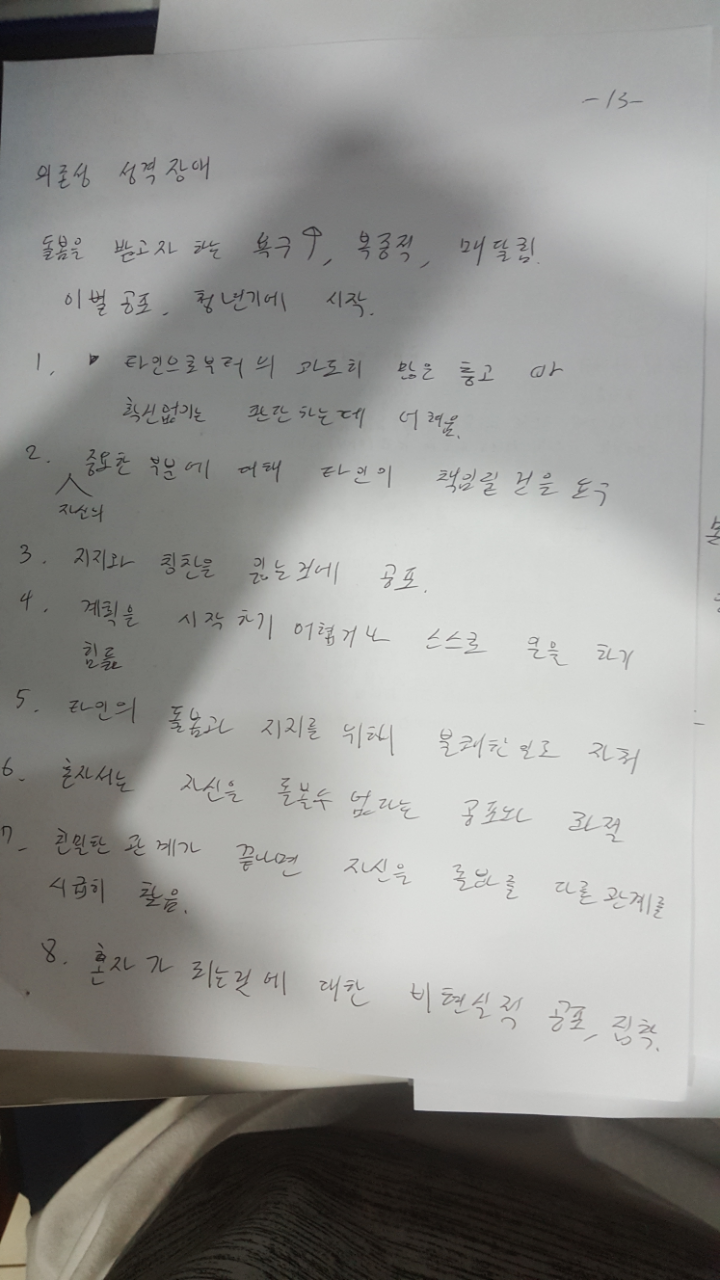 -13-
의존성 성격장애
돌봄을 받고자 하는 욕구↑, 복종적, 매달림.
이별 공포. 청년기에 시작.
1. 타인으로부터의 과도히 많은 충고 와
확신없이는 판단하는데 어려움.
2. 중요한 부분에 대해 타인의 책임질 것을 요구
자신의
3. 지지와 칭찬을 잃는것에 공포.
4. 계획을 시작하기 어렵거나 스스로 일을 하기
힘듦
5. 타인의 돌봄과 지지를 위해 불쾌한일도 자처
6. 혼자서는 자신을 돌볼수 없다는 공포와 좌절
7. 친밀한 관계가 끝나면 자신을 돌봐줄 다른 관계를
시급히 찾음.
8. 혼자가 되는것에 대한 비현실적 공포, 집착.